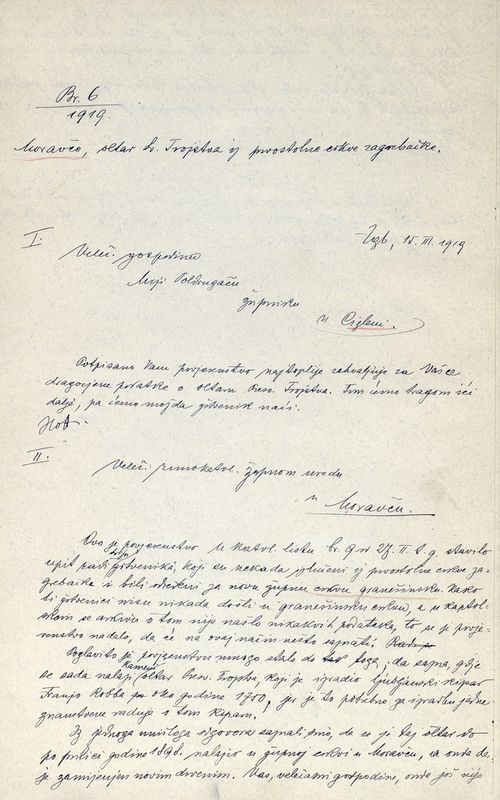 Br. 6
1919.
Moravče, oltar sv. Trojstva iz prvostolne crkve zagrebačke.
Zgb, 15. III. 1919
I.
Veleč. gospodinu
župniku
u Cigleni.
Potpisano Vam povjerenstvo najtoplije zahvaljuje za Vaše
dragocjene podatke o oltaru Presv. Trojstva. Tim ćemo tragom ići
dalje, pa ćemo možda žrtvenik naći.
II.
Veleč. rimokatol. župnom uredu
u Moravču.
Ovo je povjerenstvo u Katol. listu br. 9 od 27. II. t. g. stavilo
upit radi žrtvenika, koji su nekada izlučeni iz prvostolne crkve za-
grebačke i bili određeni za novu župnu crkvu granešinsku. Kako
ti žrtvenici nisu nikada došli u granešinsku crkvu, a u kaptol-
skom se arkivu o tom nije našlo nikakvih podataka, to se je povje-
renstvo nadalo, da će na ovaj način nešto saznati.
Poglavito je povjerenstvu mnogo stalo do toga, da sazna, gdje
se sada nalazi kameni oltar Presv. Trojstva, koji je izradio ljubljanski kipar
Franjo Robba oko godine 1750, jer je to potrebno za izradbu jedne
znanstvene radnje o tom kiparu.
Iz jednoga smo odgovora saznali, da se je taj oltar do
po prilici godine 1898. nalazio u župnoj crkvi u Moravču, a onda da
je zamijenjen novim drvenim. Vas, velečasni gospodine, onda još nije